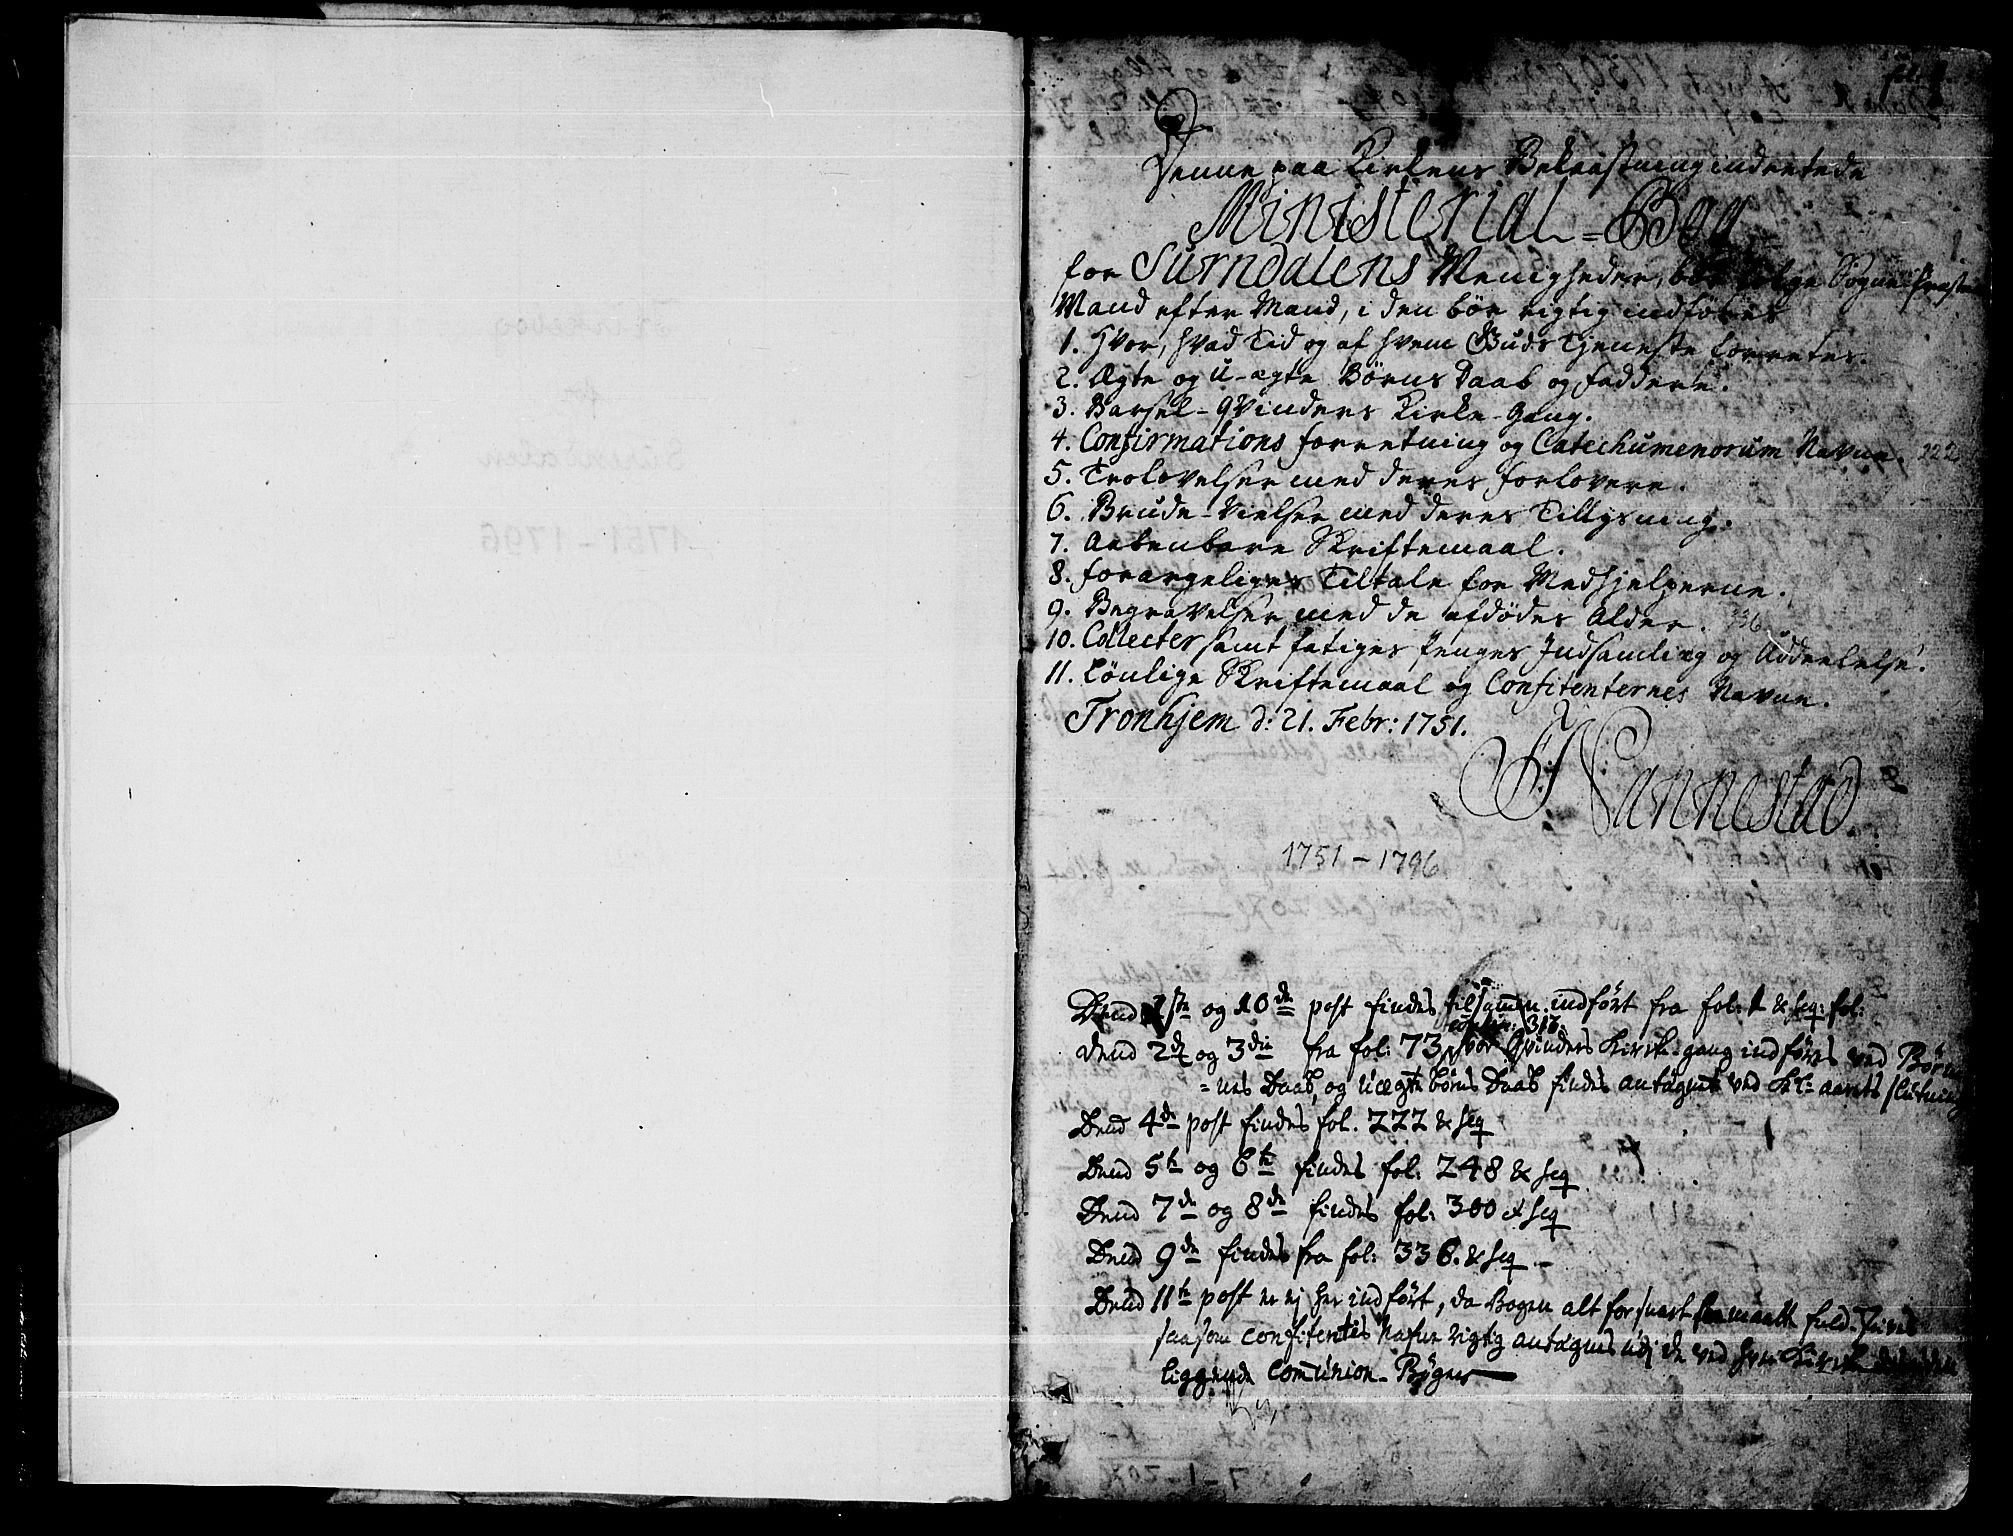 fol: 1.
Denne paa Kirkens Bekaastning indrettede
Ministerial-Bog
for Surndalens Menigheder, bør følge Sogne-Præsten
Mand efter Mand, i den bør rigtig indføres
1. Hvor, hvad Tid og af hvem Guds Tjeneste forrettes.
2. Ægte og u-ægte Børns Daab og Faddere.
3. Barsel-Qvinders Kirke-Gang.
4. Confirmations Forretning og Catechumenorum Navne. 222
5. Trolovelser med deres Forlovere.
6. Brude-Vielser med deres Tillysning.
7. Aabenbare Skriftemaal.
8. Forargeliges Tiltale for Medhjelperne.
9. Begravelser med de afdødes Alder. 336
10. Collecter samt fatiges Penges Indsamling og Uddeelelse.
11. Lønlige Skriftemaal og Confitenternes Navne.
Tronhjem d: 21. Febr: 1751.
F: Nannestad.
1751 - 1796
Dend 1ste og 10de post findes tilsammen indført fra fol: 1 & seq: fol:
Dend 2de og 3die fra fol: 73 hvor Qvinders Kirke-gang indføres ved Børne
=nes Daab, og uægte børns Daab findes antegnet ved Kl: aarets slutning
Dend 4de post findes fol. 222 & seq
Dend 5te og 6te findes fol: 248 & seq
Dend 7de og 8de findes fol: 300 & seq
Dend 9de findes fra fol: 336. & seq -
Dend 11te post er ej her indført, da Bogen alt for snart
saasom confitentes Nafne rigtig antegnes udj de ved hver Kirke
liggende Communion-Bøger